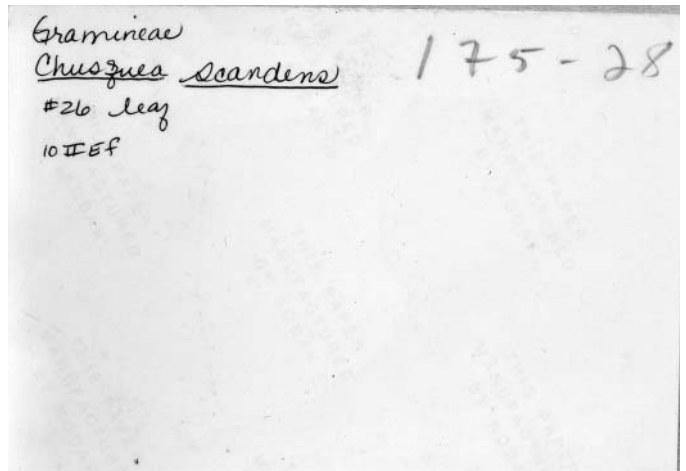 Gramineae 175-28
Chusquea scandens
#26 leaf
10 II Ef
THIS PAPER
MANUFACTURED
BY KODAK